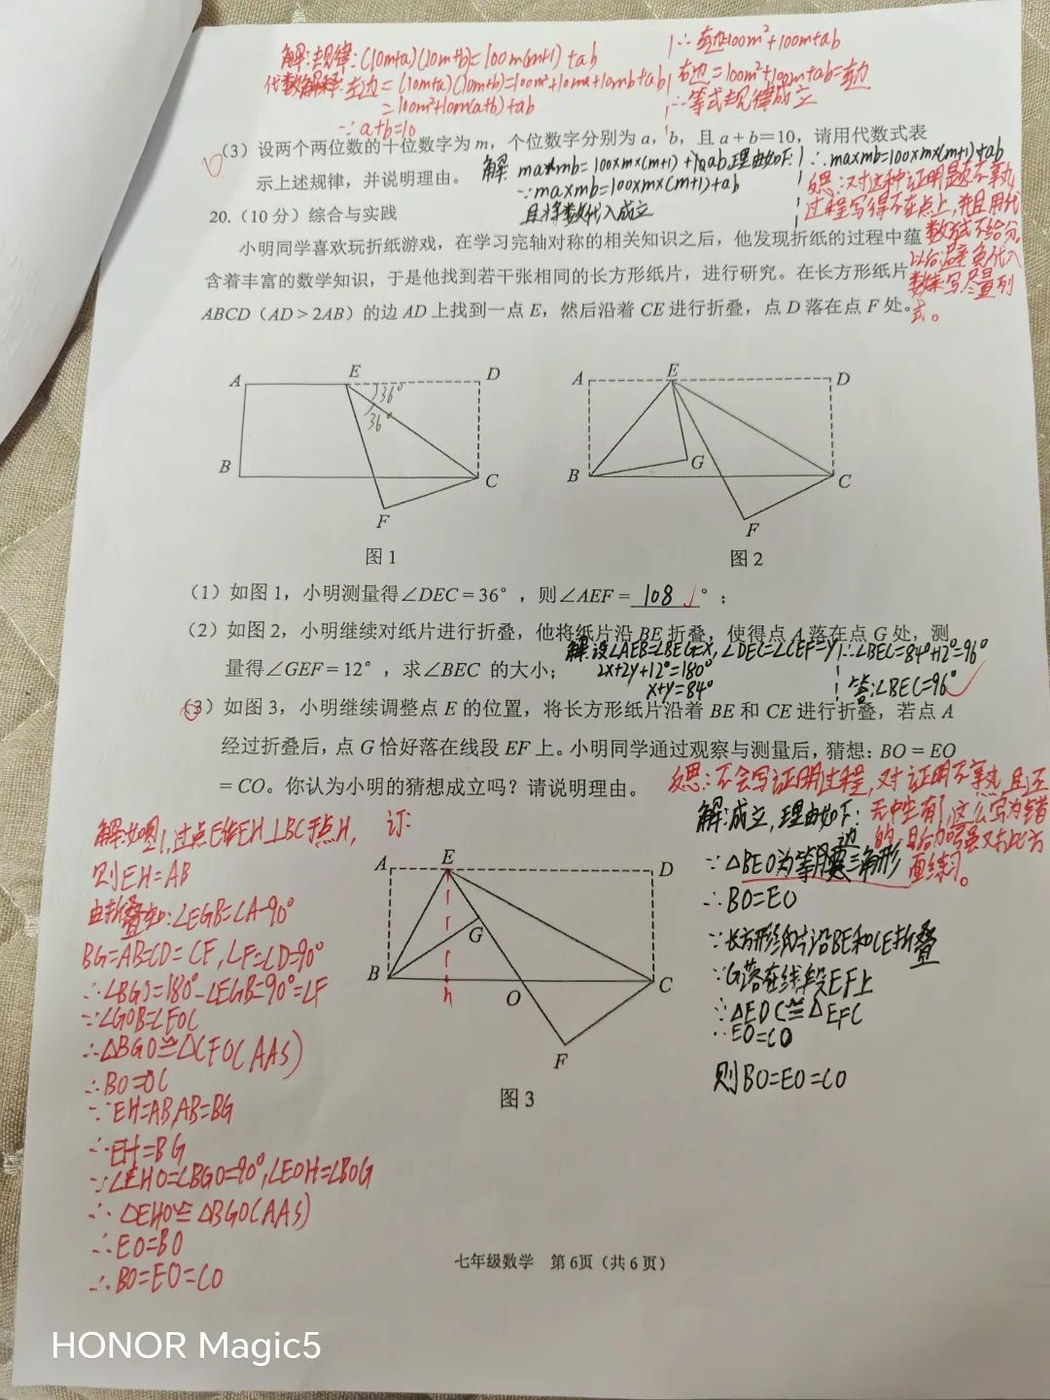 解:规律:(10m+a)(10m+b)=100m(m+1)+ab
代数解释:左边=(10m+a)(10m+b)=100m²+10ma+10mb+ab
=100m²+10m(a+b)+ab
∵a+b=10
∴左边=100m²+100m+ab
右边=100m²+100m+ab=左边
∴等式规律成立
(3)设两个两位数的十位数字为m，个位数字分别为a，b，且a+b=10，请用代数式表
示上述规律，并说明理由。
解: ma×mb=100×m×(m+1)+ab,理由如下:
∵ma×mb=100×m×(m+1)+ab
且将数代入成立
∴ma×mb=100×m×(m+1)+ab
反思:对这种证明题不熟
过程写得不在点上,并且用代
数试不给分,
以后
数
式。
20.（10分）综合与实践
小明同学喜欢玩折纸游戏，在学习完轴对称的相关知识之后，他发现折纸的过程中蕴
含着丰富的数学知识，于是他找到若干张相同的长方形纸片，进行研究。在长方形纸片
ABCD（AD>2AB）的边AD上找到一点E，然后沿着CE进行折叠，点D落在点F处。
A E D
36°
36°
B C
F
图1
A E D
B G C
F
图2
(1)如图1，小明测量得∠DEC=36°，则∠AEF=108°；
(2)如图2，小明继续对纸片进行折叠，他将纸片沿BE折叠，使得点A落在点G处，测
量得∠GEF=12°，求∠BEC的大小；
解:设∠AEB=∠BEG=x,∠DEC=∠CEF=y
2x+2y+12°=180°
x+y=84°
∴∠BEC=84°+12°=96°
答:∠BEC=96°
(3)如图3，小明继续调整点E的位置，将长方形纸片沿着BE和CE进行折叠，若点A
经过折叠后，点G恰好落在线段EF上。小明同学通过观察与测量后，猜想：BO=EO
=CO。你认为小明的猜想成立吗？请说明理由。
反思:不会写证明过程,对证明不熟,且还
无中生有,这么写为错
的,日后加强
练习。
解:成立,理由如下:
∵△BEO为等腰三角形
边
∴BO=EO
∵长方形纸片沿BE和CE折叠
∵G落在线段EF上
∴△EDC≌△EFC
∴EO=CO
则BO=EO=CO
订:
解:如图1,过点E作EH⊥BC于点H,
则EH=AB
由折叠知:∠EGB=∠A=90°
BG=AB=CD=CF,∠F=∠D=90°
∴∠BGO=180°-∠EGB=90°=∠F
∵∠GOB=∠FOC
∴△BGO≌△CFO(AAS)
∴BO=OC
∵EH=AB,AB=BG
∴EH=BG
∵∠EHO=∠BGO=90°,∠EOH=∠BOG
∴△EHO≌△BGO(AAS)
∴EO=BO
∴BO=EO=CO
A E D
G
B h O C
F
图3
七年级数学 第6页（共6页）
HONOR Magic5